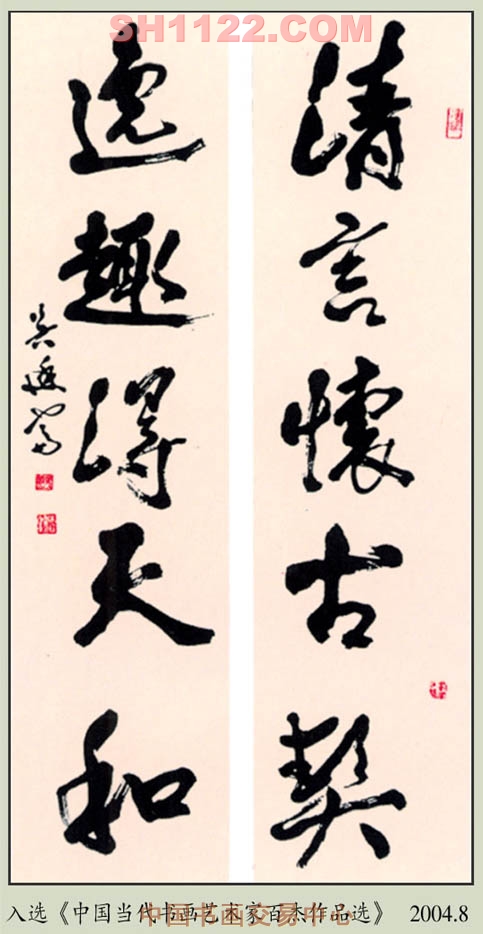 SH1122.COM
清言懷古契
遠趣得天和
入选《中国当代书画艺术家百杰作品选》 2004.8
中国书画交易中心